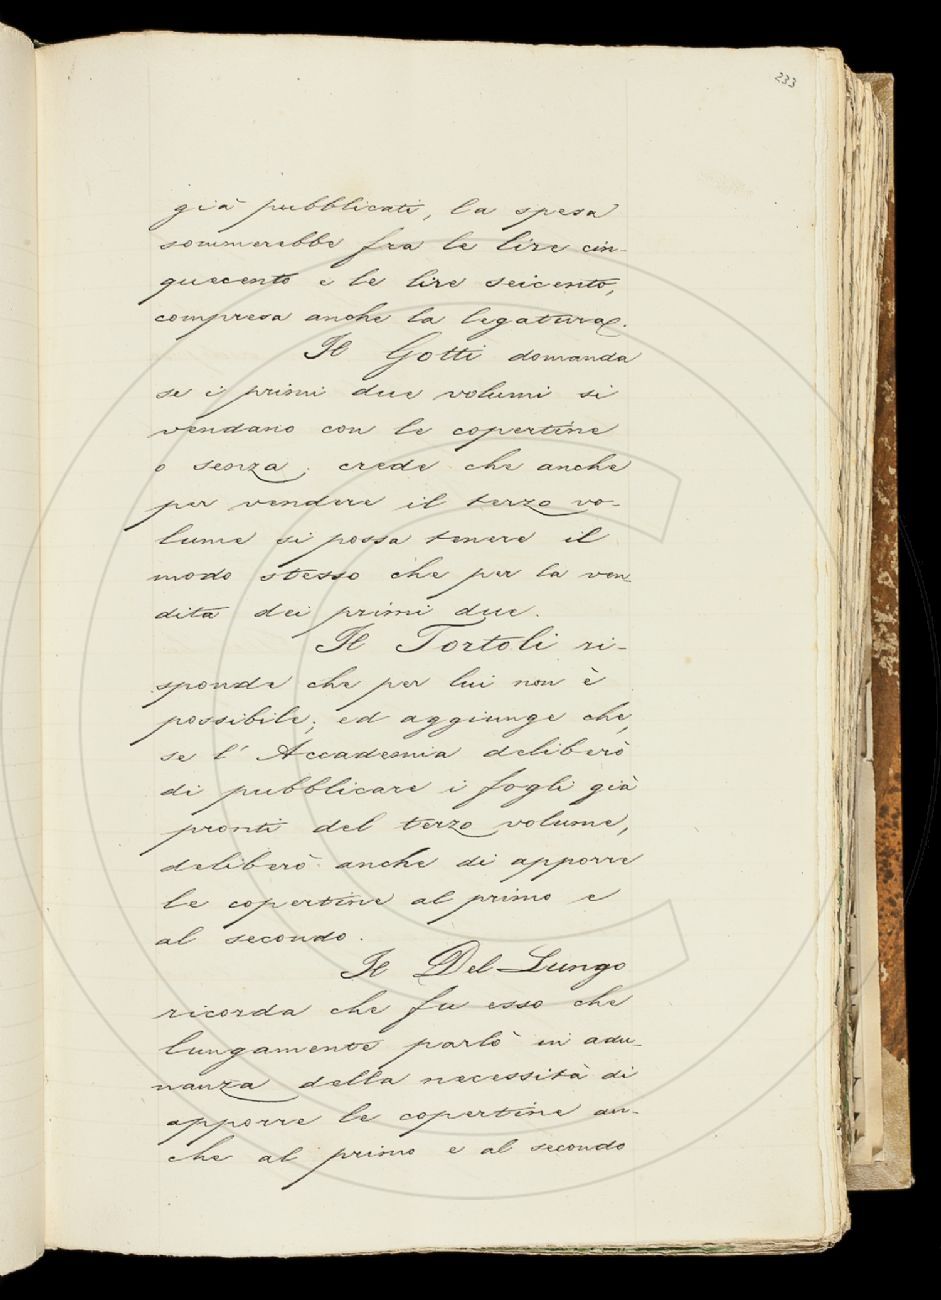 233
già pubblicati, la spesa
sommerebbe fra le lire cin-
quecento e le lire seicento,
compresa anche la legatura.
Il Gotti domanda
se i primi due volumi si
vendano con le copertine
o senza; crede che anche
per vendere il terzo vo-
lume si possa tenere il
modo stesso che per la ven-
dita dei primi due.
Il Tortoli ri-
sponde che per lui non è
possibile; ed aggiunge che,
se l'Accademia deliberò
di pubblicare i fogli già
pronti del terzo volume,
deliberò anche di apporre
le copertine al primo e
al secondo.
Il Del Lungo
ricorda che fu esso che
lungamente parlò in adu-
nanza della necessità di
apporre le copertine an-
che al primo e al secondo